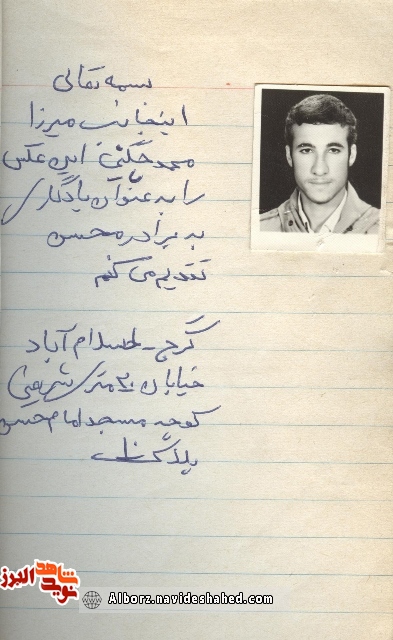 بسمه تعالی
اینجانب میرزا
محمد این عکس
را به عنوان یادگاری
به برادر محسن
تقدیم می کنم
کرج - اسلام آباد
خیابان ۲۰ متری شریعتی
کوچه مسجد امام حسن
پلاک
شاهد
نوید
البرز
Alborz.navideshahed.com